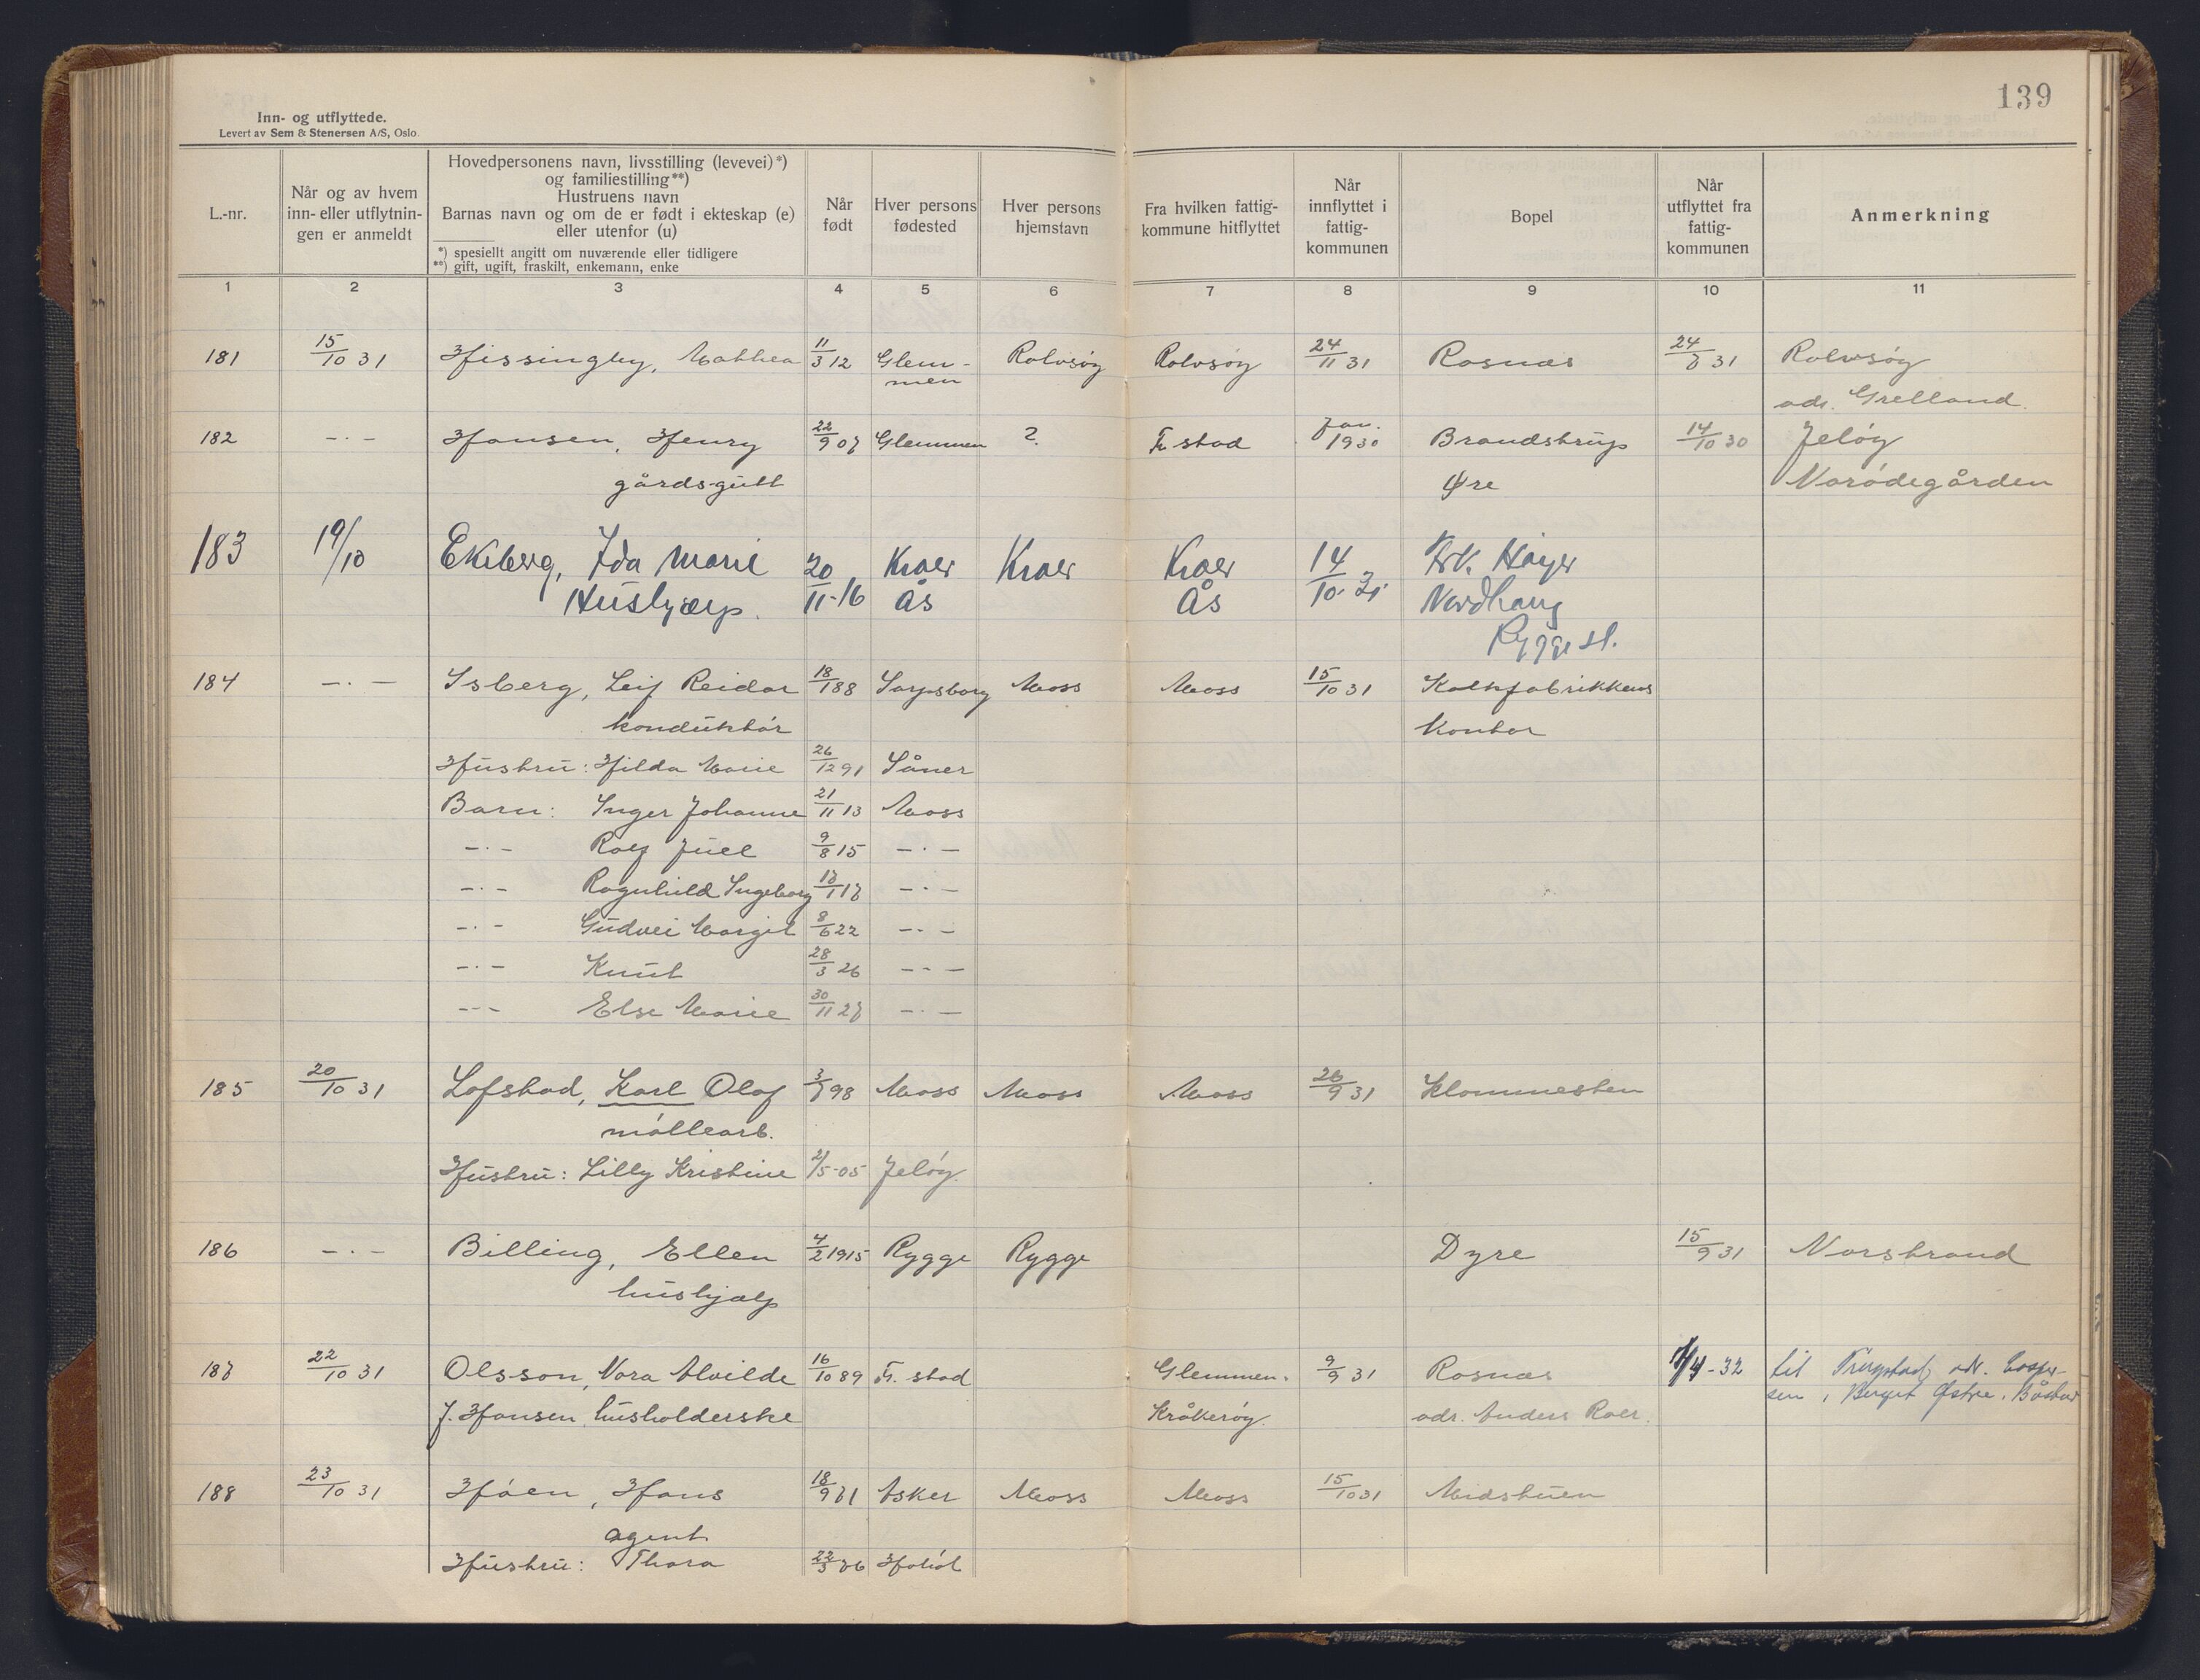 139
Inn- og utflyttede.
Levert av Sem & Stenersen A/S, Oslo.
L.-nr.
Når og av hvem
inn- eller utflytnin-
gen er anmeldt
Hovedpersonens navn, livsstilling (levevei) *)
og familiestilling **)
Hustruens navn
Barnas navn og om de er født i ekteskap (e)
eller utenfor (u)
*) spesiellt angitt om nuværende eller tidligere
**) gift, ugift, fraskilt, enkemann, enke
Når
født
Hver persons
fødested
Hver persons
hjemstavn
Fra hvilken fattig-
kommune hitflyttet
Når
innflyttet i
fattig-
kommunen
Bopel
Når
utflyttet fra
fattig-
kommunen
Anmerkning
1 2 3 4 5 6 7 8 9 10 11
181 15/10 31 Hissingby, Mathea 11/3 12 Glem- Rolvsøy Rolvsøy 24/11 31 Rosnæs 24/8 31 Rolvsøy
men adr. Grelland.
182 -·- Hansen, Henry 22/9 07 Glemmen ? Fr.stad Jan. 1930 Brandstrup 14/10 30 Jeløy
gårdsgutt Øre Norødegården
183 19/10 Ekeberg, Ida Marie 20/11-16 Kraer Kraer Kraer 14/10 31 Frk. Høyer
Hushjælp. Ås Ås Nordhaug
Rygge st.
184 -·- Isberg, Leif Reidar 18/1 88 Sarpsborg Moss Moss 15/10 31 Kalkfabrikkens
konduktør Kontor
Hustru: Hilda Marie 26/12 91 Såner
Barn: Inger Johanne 21/11 13 Moss
-·- Rolf Juel 9/8 15 -·-
-·- Ragnhild Ingeborg 17/1 17 -·-
-·- Gudvei Margit 8/6 22 -·-
-·- Knut 28/3 26 -·-
-·- Else Marie 30/11 27 -·-
185 20/10 31 Lofstad, Karl Olaf 3/7 98 Moss Moss Moss 26/9 31 Klommesten
møllearb.
Hustru: Lilly Kristine 2/5-05 Jeløy.
186 -·- Billing, Ellen 4/2 1915 Rygge Rygge Dyre 15/9 31 Norstrand
hushjælp
187 22/10 31 Olsson, Nora Alvilde 16/10 89 Fr. stad Glemmen. 9/9 31 Rosnæs /4-32 til Trøgstad, adr.
f. Hansen, husholderske Kråkerøy. adr. Anders Roer. Berget Østre, Båstad
188 23/10 31 Høen, Hans 18/9 71 Asker Moss Moss 15/10 31 Midstuen
agent
Hustru: Thora 22/3 76 Holøl